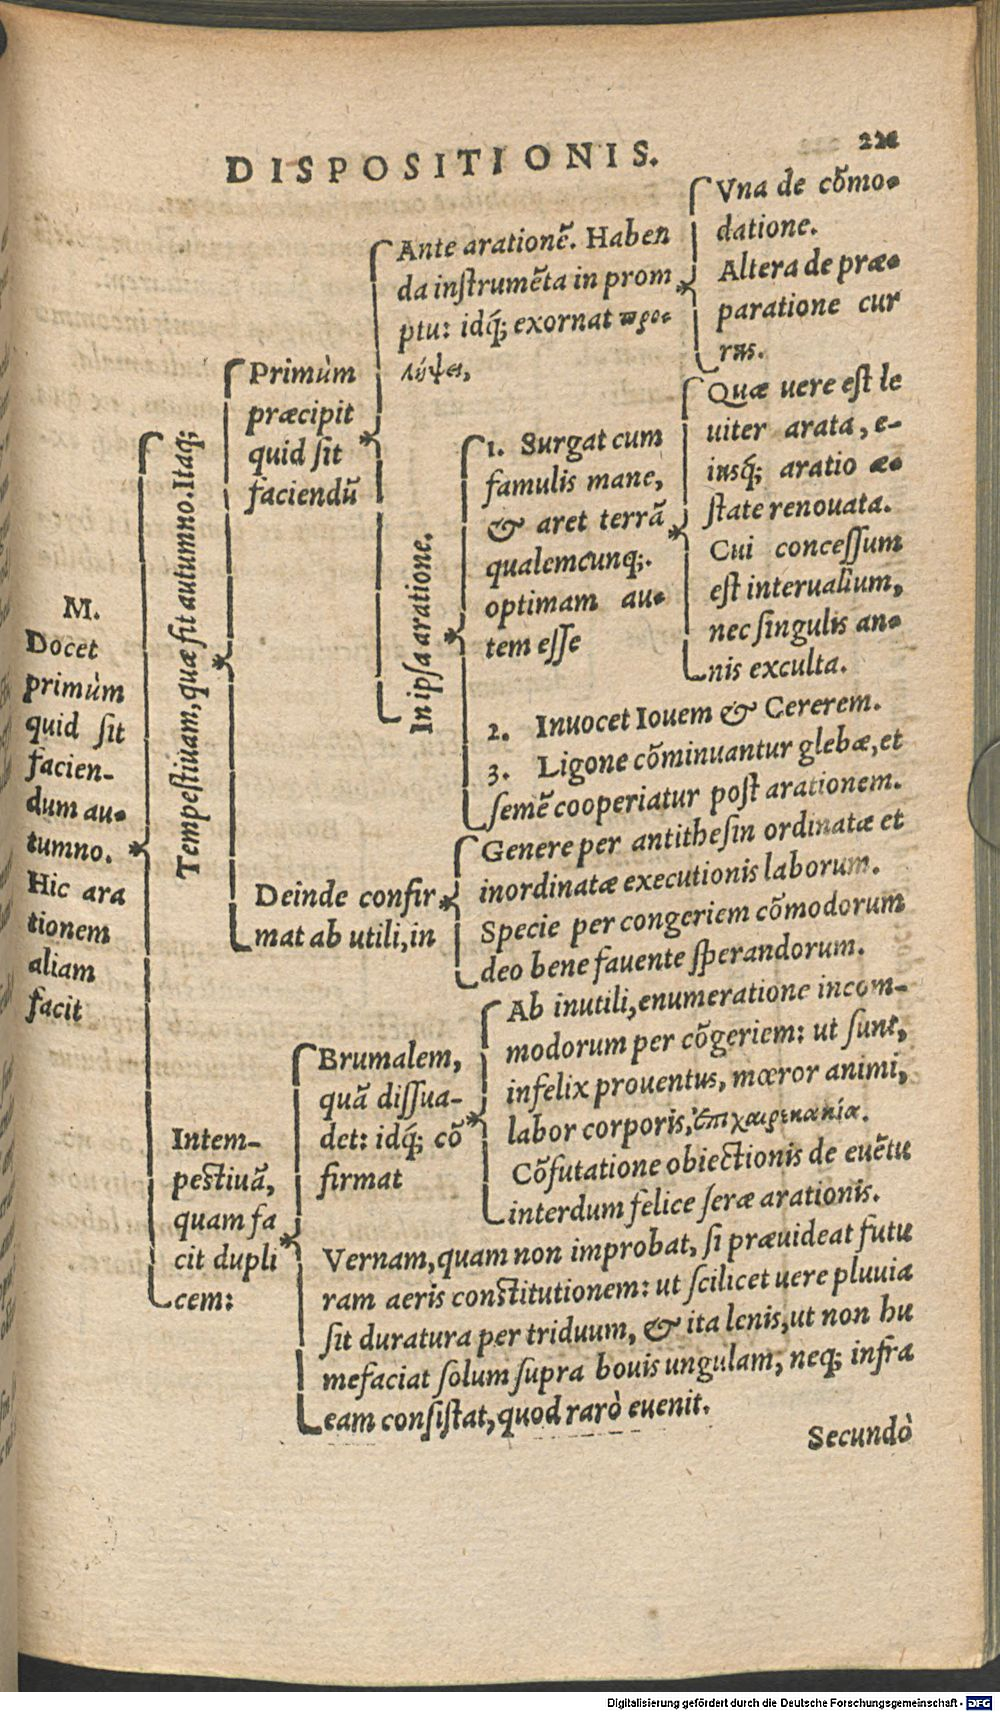 DISPOSITIONIS.
M.
Docet
primùm
quid sit
facien-
dum au-
tumno.
Hic ara
tionem
aliam
facit
Tempestiuam, quæ fit autumno. Itaq;
Primùm
præcipit
quid sit
faciendũ
Ante arationẽ. Haben
da instrumẽta in prom
ptu: idq́; exornat προ-
λήψει,
Vna de cõmo-
datione.
Altera de præ-
paratione cur
rus.
In ipsa aratione.
1. Surgat cum
famulis mane,
& aret terrã
qualemcunq;.
optimam au-
tem esse
Quæ uere est le
uiter arata, e-
iusq́; aratio æ-
state renouata.
Cui concessum
est interuallum,
nec singulis an-
nis exculta.
2. Inuocet Iouem & Cererem.
3. Ligone cõminuantur glebæ, et
semẽ cooperiatur post arationem.
Deinde confir
mat ab utili, in
Genere per antithesin ordinatæ et
inordinatæ executionis laborum.
Specie per congeriem cõmodorum
deo bene fauente sperandorum.
Intem-
pestiuã,
quam fa
cit dupli
cem:
Brumalem,
quã dissua-
det: idq́; cõ
firmat
Ab inutili, enumeratione incom-
modorum per cõgeriem: ut sunt,
infelix prouentus, mœror animi,
labor corporis, ἐπιχαιρεκακία.
Cõfutatione obiectionis de euẽtu
interdum felice seræ arationis.
Vernam, quam non improbat, si præuideat futu
ram aeris constitutionem: ut scilicet uere pluuia
sit duratura per triduum, & ita lenis, ut non hu
mefaciat solum supra bouis ungulam, neq; infra
eam consistat, quod rarò euenit.
Secundò
Digitalisierung gefördert durch die Deutsche Forschungsgemeinschaft - DFG